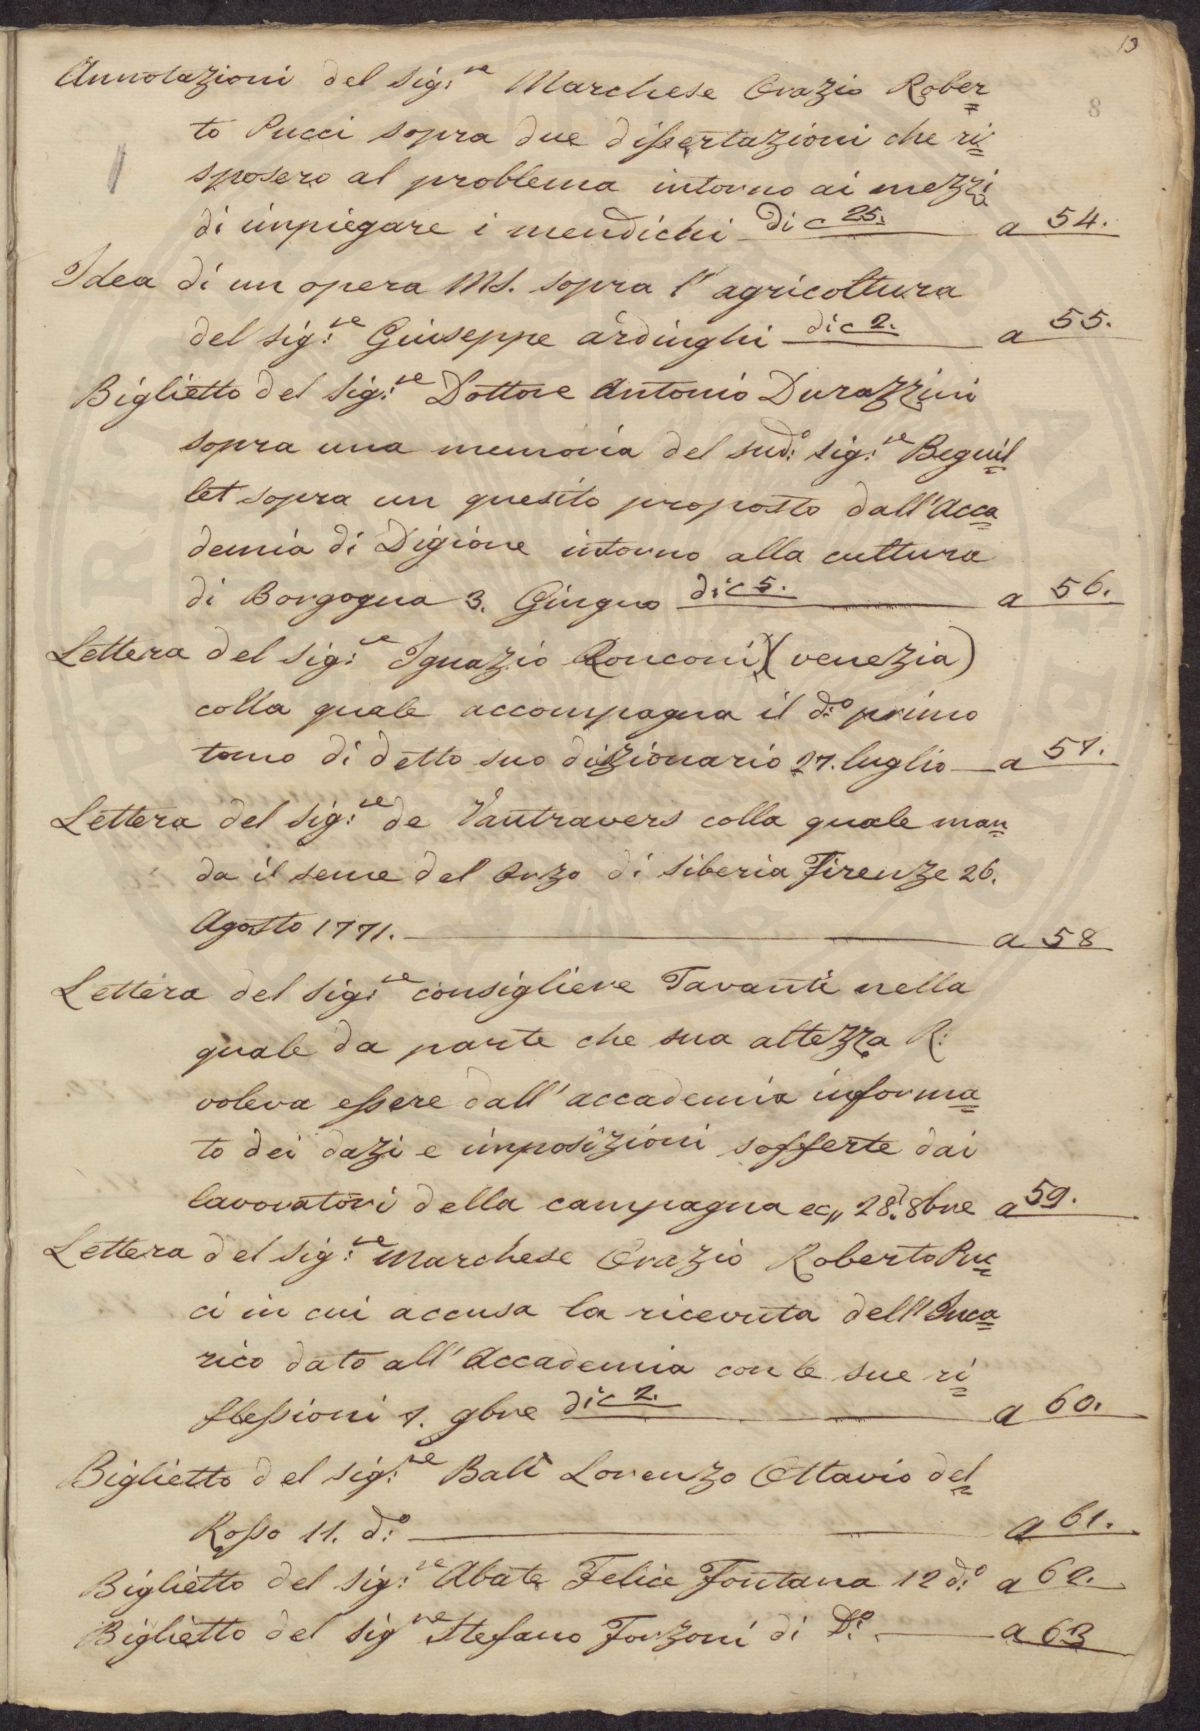 13
8
Annotazioni del Sig:re Marchese Orazio Rober=
to Pucci sopra due dissertazioni che ri=
sposero al problema intorno ai mezzi
di impiegare i mendichi di c 25. a 54.
Idea di un opera MS. sopra l'agricoltura
del Sig:re Giuseppe Ardinghi di c 2. a 55.
Biglietto del Sig:re Dottore Antonio Durazzini
sopra una memoria del sud:o Sig:re Beguil=
let sopra un quesito proposto dall'Acca=
demia di Digione intorno alla cultura
di Borgogna 3. Giugno di c 5. a 56.
Lettera del Sig:re Ignazio Ronconi (venezia)
colla quale accompagna il d:o primo
tomo di detto suo dizionario 27. luglio a 57.
Lettera del Sig:re de Vautravers colla quale man=
da il seme del Orzo di Siberia Firenze 26.
Agosto 1771. a 58
Lettera del Sig:re Consigliere Tavanti nella
quale da parte che sua altezza R:
voleva essere dall'accademia informa=
to dei dazi e imposizioni sofferte dai
lavoratori della campagna ec,, 28. 8bre a 59.
Lettera del Sig:re Marchese Orazio Roberto Puc=
ci in cui accusa la ricevuta dell'Inca=
rico dato all'Accademia con le sue ri=
flessioni 9bre di c 2. a 60.
Biglietto del Sig:re Balì Lorenzo Ottavio del=
Rosso 11. d:o a 61.
Biglietto del Sig:re Abate Felice Fontana 12 d:o a 62.
Biglietto del Sig re Stefano Forzoni di D:o a 63